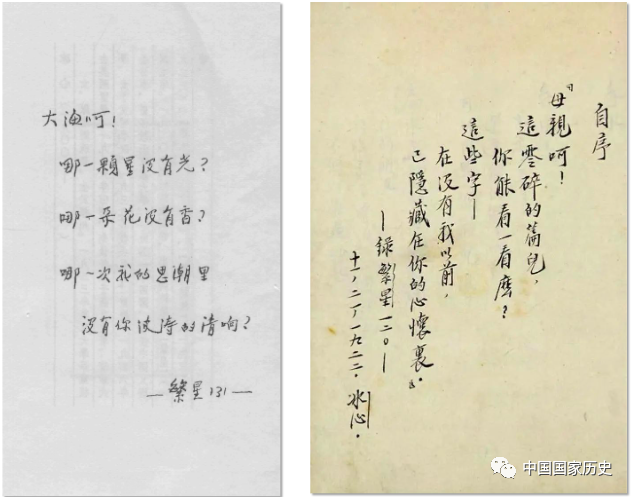 大海呵！
哪一顆星没有光？
哪一朵花没有香？
哪一次我的思潮里
没有你波涛的清响？
—繁星131—
自序
「母親呵！
這零碎的篇兒，
你能看一看麼？
這些字—
在没有我以前，
已隱藏在你的心懷裏。」
—錄繁星一二〇—
十一，二一，一九二二．冰心．
中国国家历史